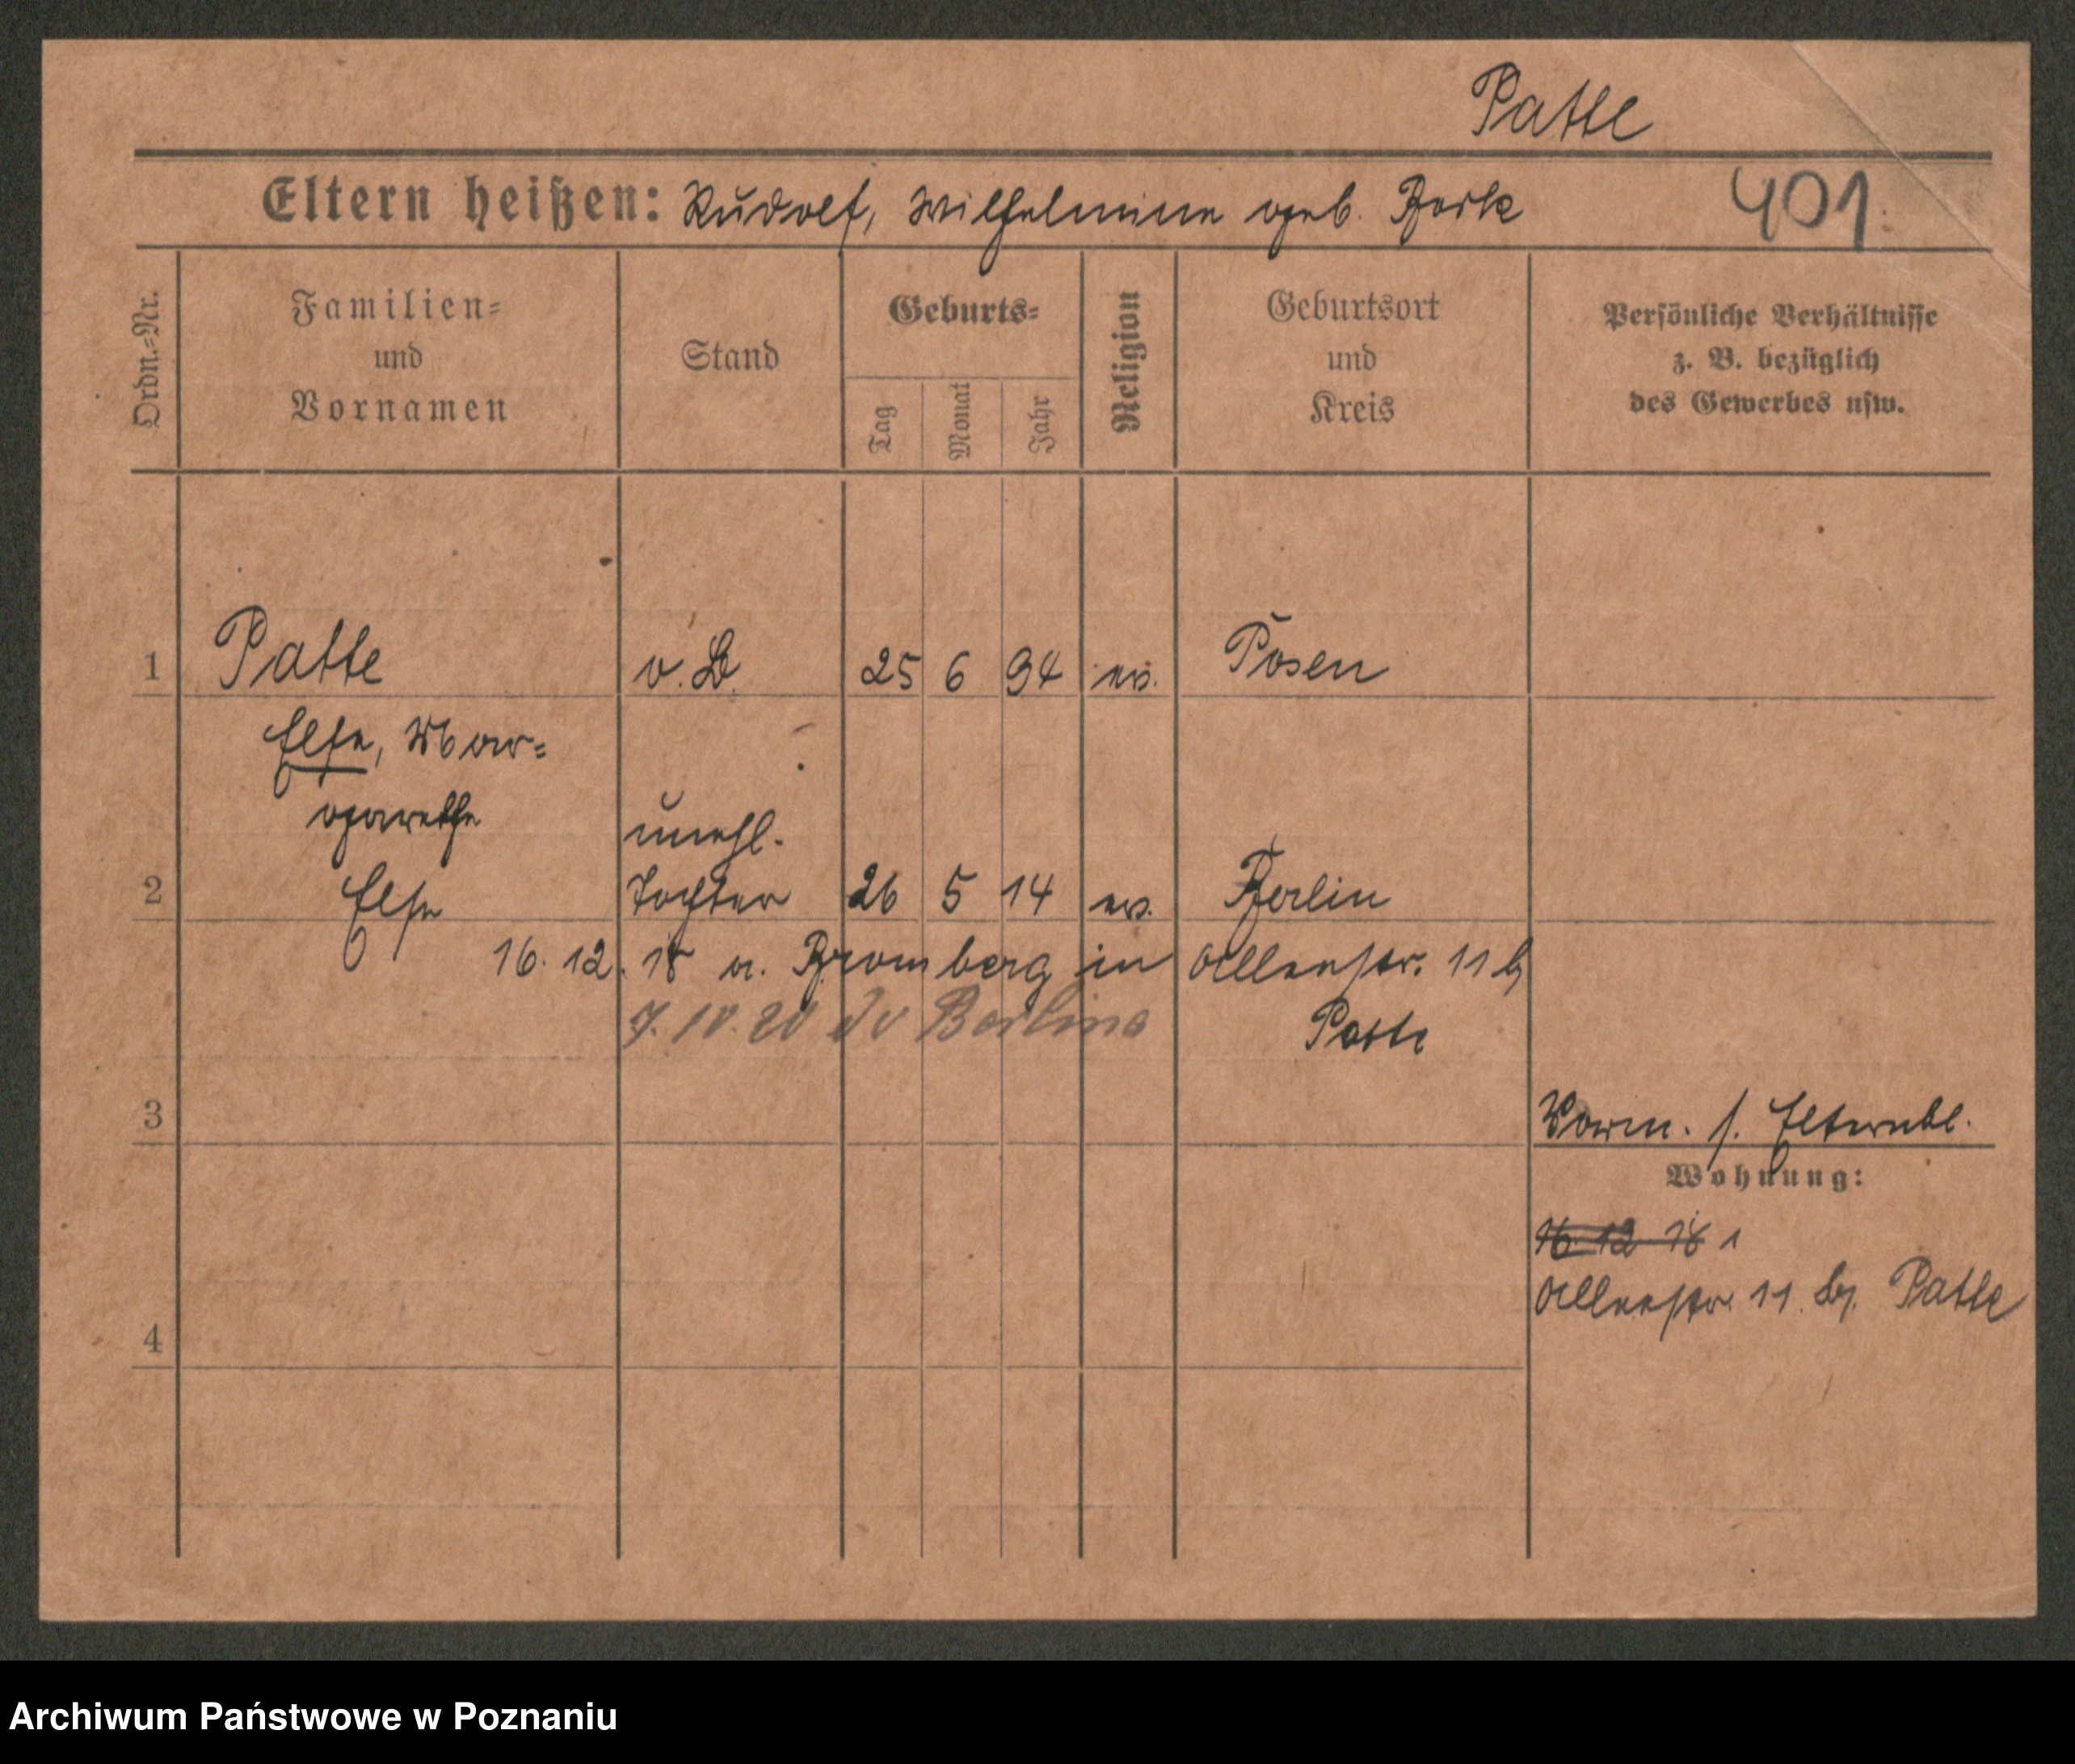 Patte
Eltern heißen: Rudolf, Wilhelmine geb. Bork 401
Ordn.=Nr.
Familien=
und
Vornamen
Stand
Geburts=
Tag
Monat
Jahr
Religion
Geburtsort
und
Kreis
Persönliche Verhältnisse
z. B. bezüglich
des Gewerbes usw.
1 Patte o. B. 25 6 94 ev. Posen
Else, Mar=
garethe
unehl.
2 Else Tochter 26 5 14 ev. Berlin
16. 12. 18 a. Bromberg in Alleestr. 11 b
Patte
7. 10. 20 do Berlina
3
Vorm. s. Elternbl.
Wohnung:
16. 12 18
Alleestr. 11. b. Patte
4
Archiwum Państwowe w Poznaniu